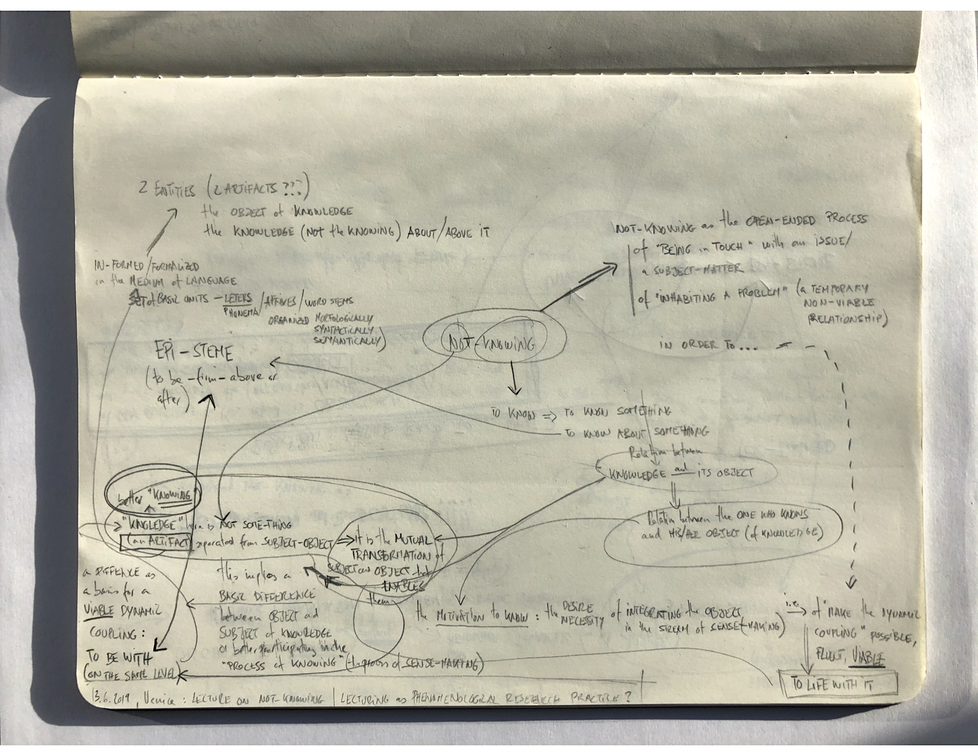 2 ENTITIES (2 ARTIFACTS ???)
the OBJECT of KNOWLEDGE
the KNOWLEDGE (NOT the KNOWING) ABOUT/ABOVE IT
IN-FORMED/FORMALIZED
in the MEDIUM of LANGUAGE
SET of BASIC UNITS – LETERS / AFFIXES / WORD STEMS
PHONEMA/
ORGANIZED MORFOLOGICALLY
SYNTACTICALLY
SEMANTICALLY)
EPI-STEME
(to be-firm-above or
after)
NOT-KNOWING
NOT-KNOWING as the OPEN-ENDED PROCESS
of "BEING in TOUCH" with an ISSUE/
a SUBJECT-MATTER
of "INHABITING A PROBLEM" (a TEMPORARY
NON-VIABLE
RELATIONSHIP)
IN ORDER TO...
TO KNOW => TO KNOW SOMETHING
TO KNOW ABOUT SOMETHING
Relation between
KNOWLEDGE and ITS OBJECT
Relation between the ONE WHO KNOWS
and HIS/HER OBJECT (of KNOWLEDGE)
better "KNOWING"
"KNOLEDGE" here is NOT SOME-THING
(an ARTIFACT) separated from SUBJECT-OBJECT
It is the MUTUAL
TRANSFORMATION of
SUBJECT and OBJECT that
ENABLES
them
a DIFFENCE as
a basis for a
VIABLE DYNAMIC
COUPLING:
TO BE WITH
(ON THE SAME LEVEL)
this implies a
BASIC DIFFERENCE
between OBJECT and
SUBJECT of KNOWLEDGE
or better participating in the
"PROCESS of KNOWING" (the process of SENSE-MAKING)
the MOTIVATION TO KNOW: the DESIRE
NECESSITY
of INTEGRATING the OBJECT
in the STREAM of SENSE-MAKING)
i.e.
of "MAKE the DYNAMIC
COUPLING" POSSIBLE,
FLUENT, VIABLE
TO LIFE WITH IT
13.6.2019, Venice: LECTURE ON NOT-KNOWING | LECTURING as PHENOMENOLOGICAL RESEARCH PRACTICE?